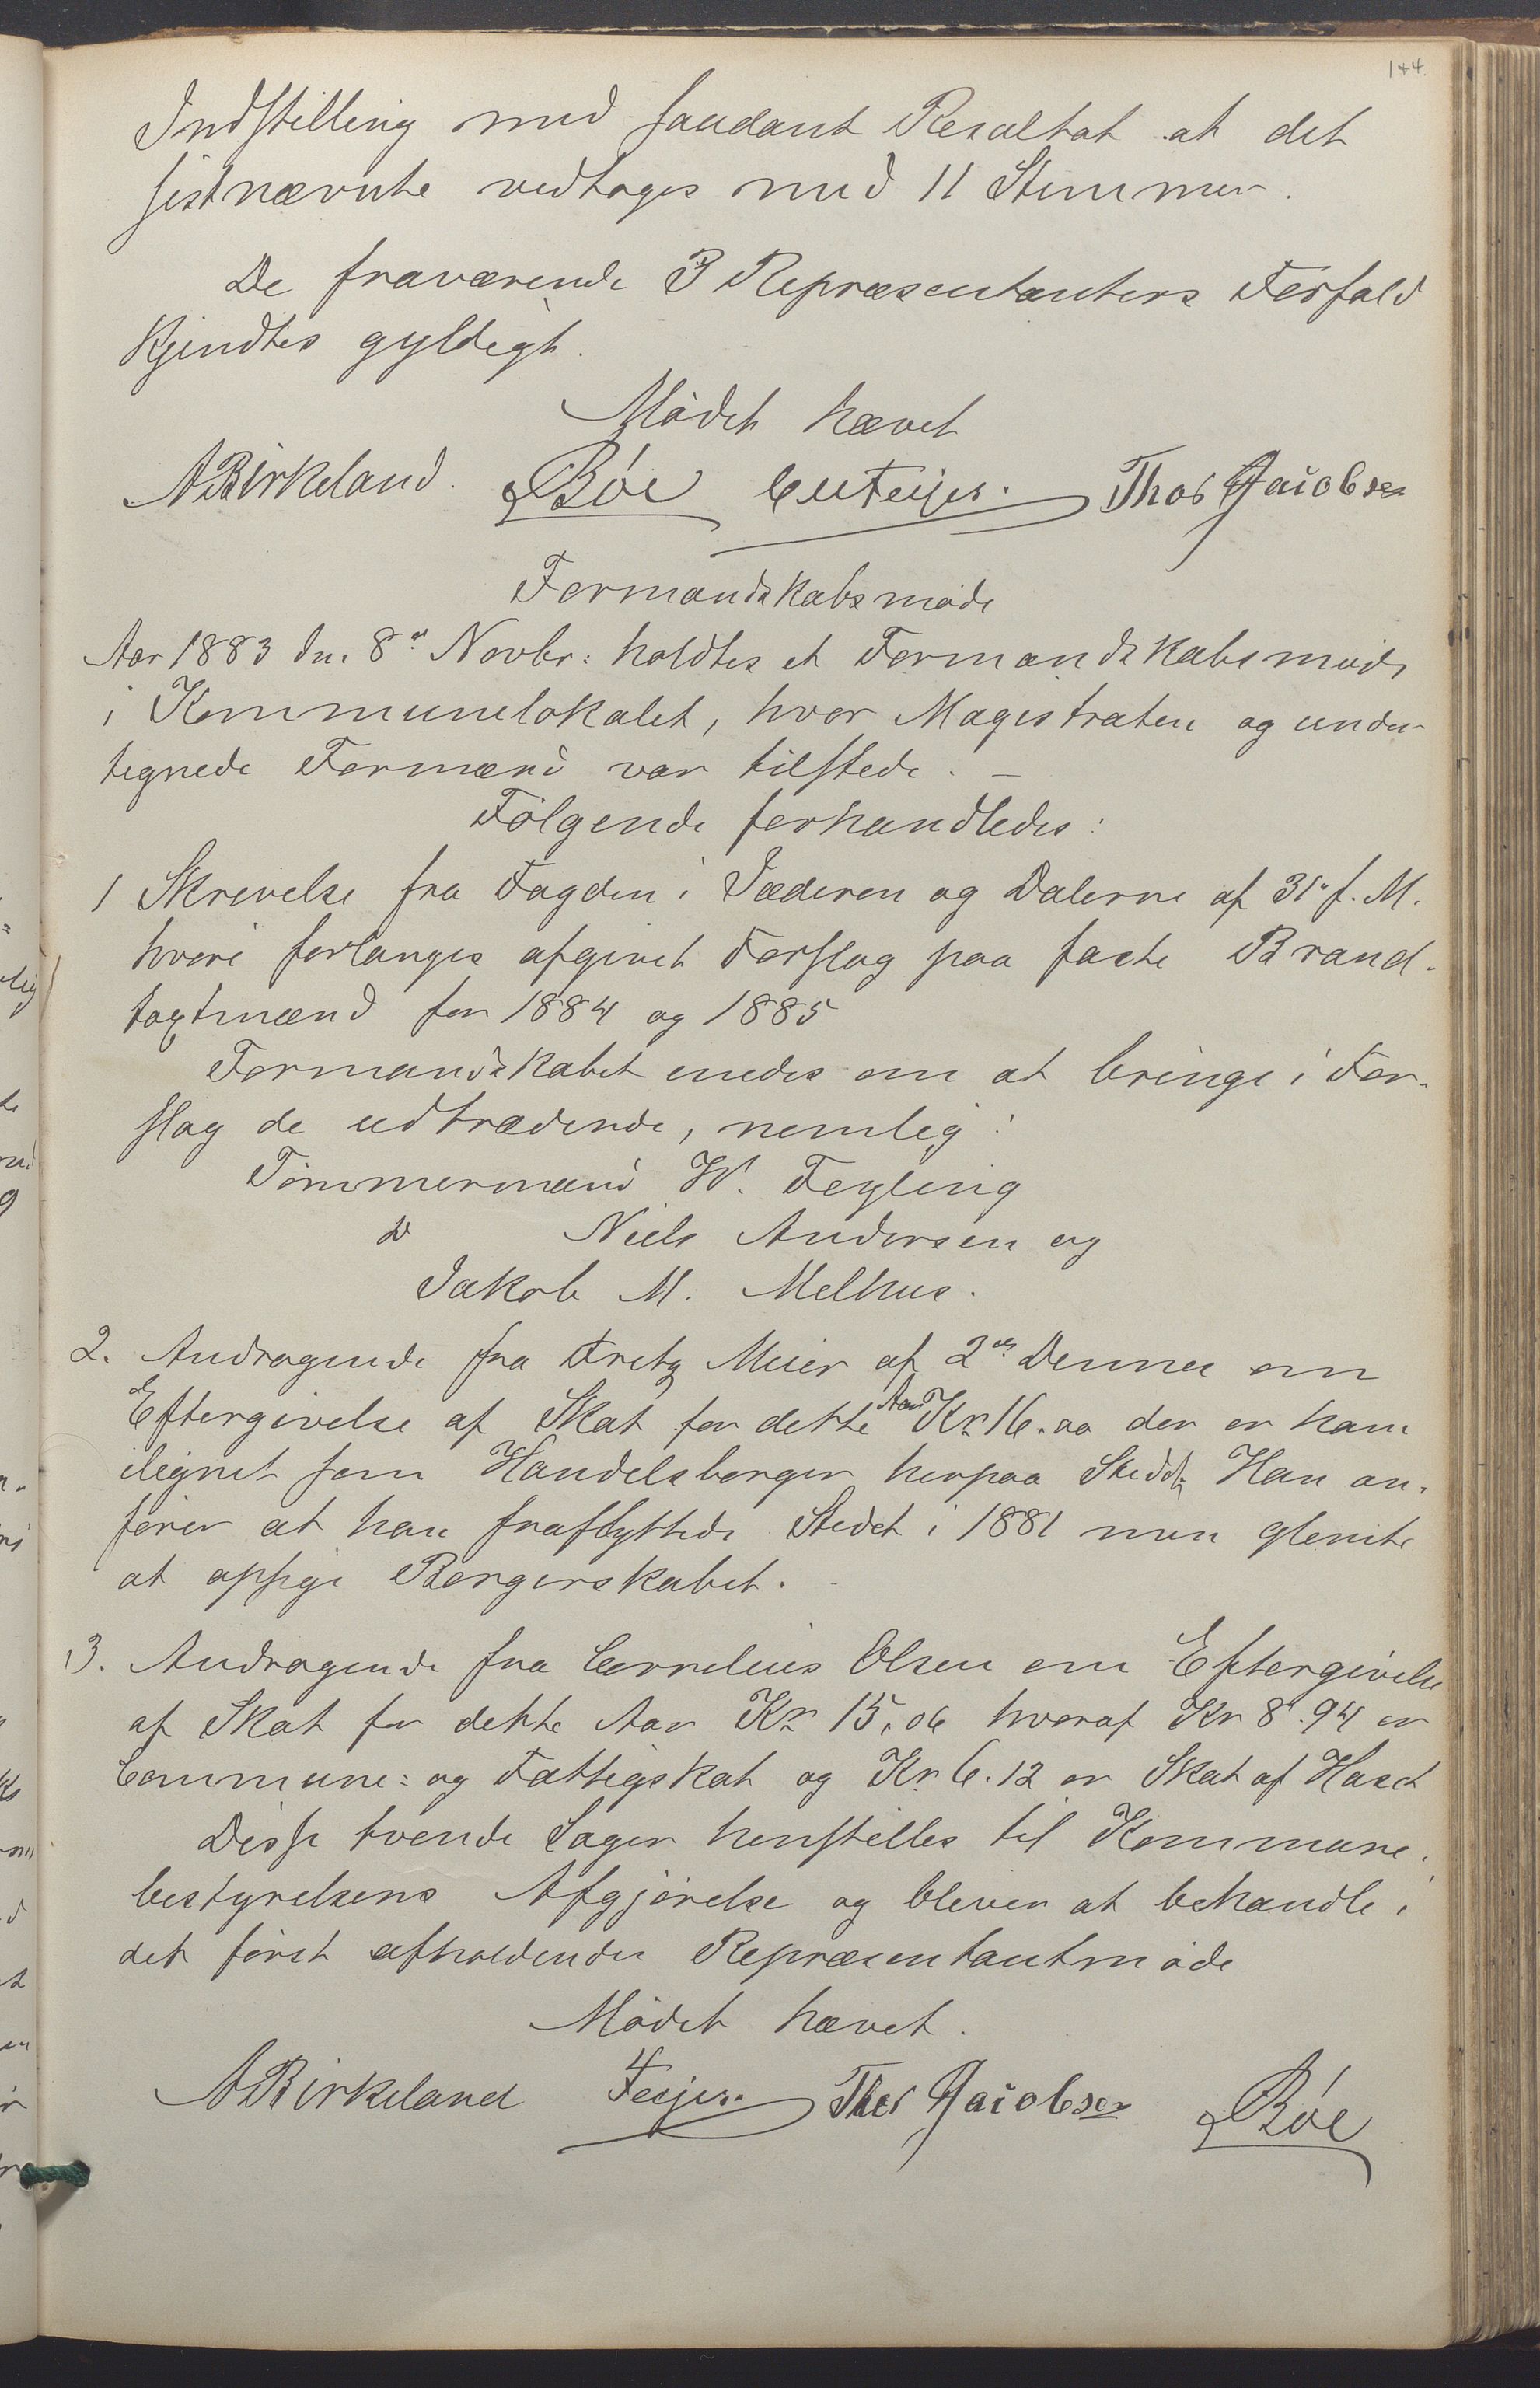 144.
Indstilling med saadant Resultat at det
sistnævnte vedtoges med 11 Stemmer.
De fraværende 3 Repræsentanters Forfald
kjendtes gyldigt.
Mødet hævet
ABirkeland. Bóe Thos Jacobsen
Formandskabsmøde
Aar 1883 den 8de Novbr: holdtes et Formandskabsmøde
i Kommunelokalet, hvor Magistraten og under-
tegnede Formænd var tilstede. –
Følgende forhandledes:
1 Skrivelse fra Fogden i Jæderen og Dalerne af 31te f. M.
hvori forlanges afgivet Forslag paa faste Brand-
taxtmænd for 1884 og 1885
Formandskabet enedes om at bringe i For-
slag de udtrædende, nemlig:
Tømmermænd W. Feyling
do Niels Andersen og
Jakob M. Melhus.
2. Andragende fra Fretz Meier af 2den Dennes om
Eftergivelse af Skat for dette Aar Kr. 16.00 der er ham
ilignet som Handelsborger herpaa Stedet. Han an-
fører at han fraflyttede Stedet i 1881 men glemte
at opsige Borgerskabet.
3. Andragende fra Cornelius Olsen om Eftergivelse
af Skat for dette Aar Kr. 15,06 hvoraf Kr 8.94 er
Commune= og Fattigskat og Kr. 6.12 er Skat af Hast
Disse tvende Sager henstilles til Kommune-
bestyrelsens Afgjørelse og bliver at behandle i
det først afholdendes Repræsentantmøde
Mødet hævet.
ABirkeland Feijer. Thos Jacobsen Bóe